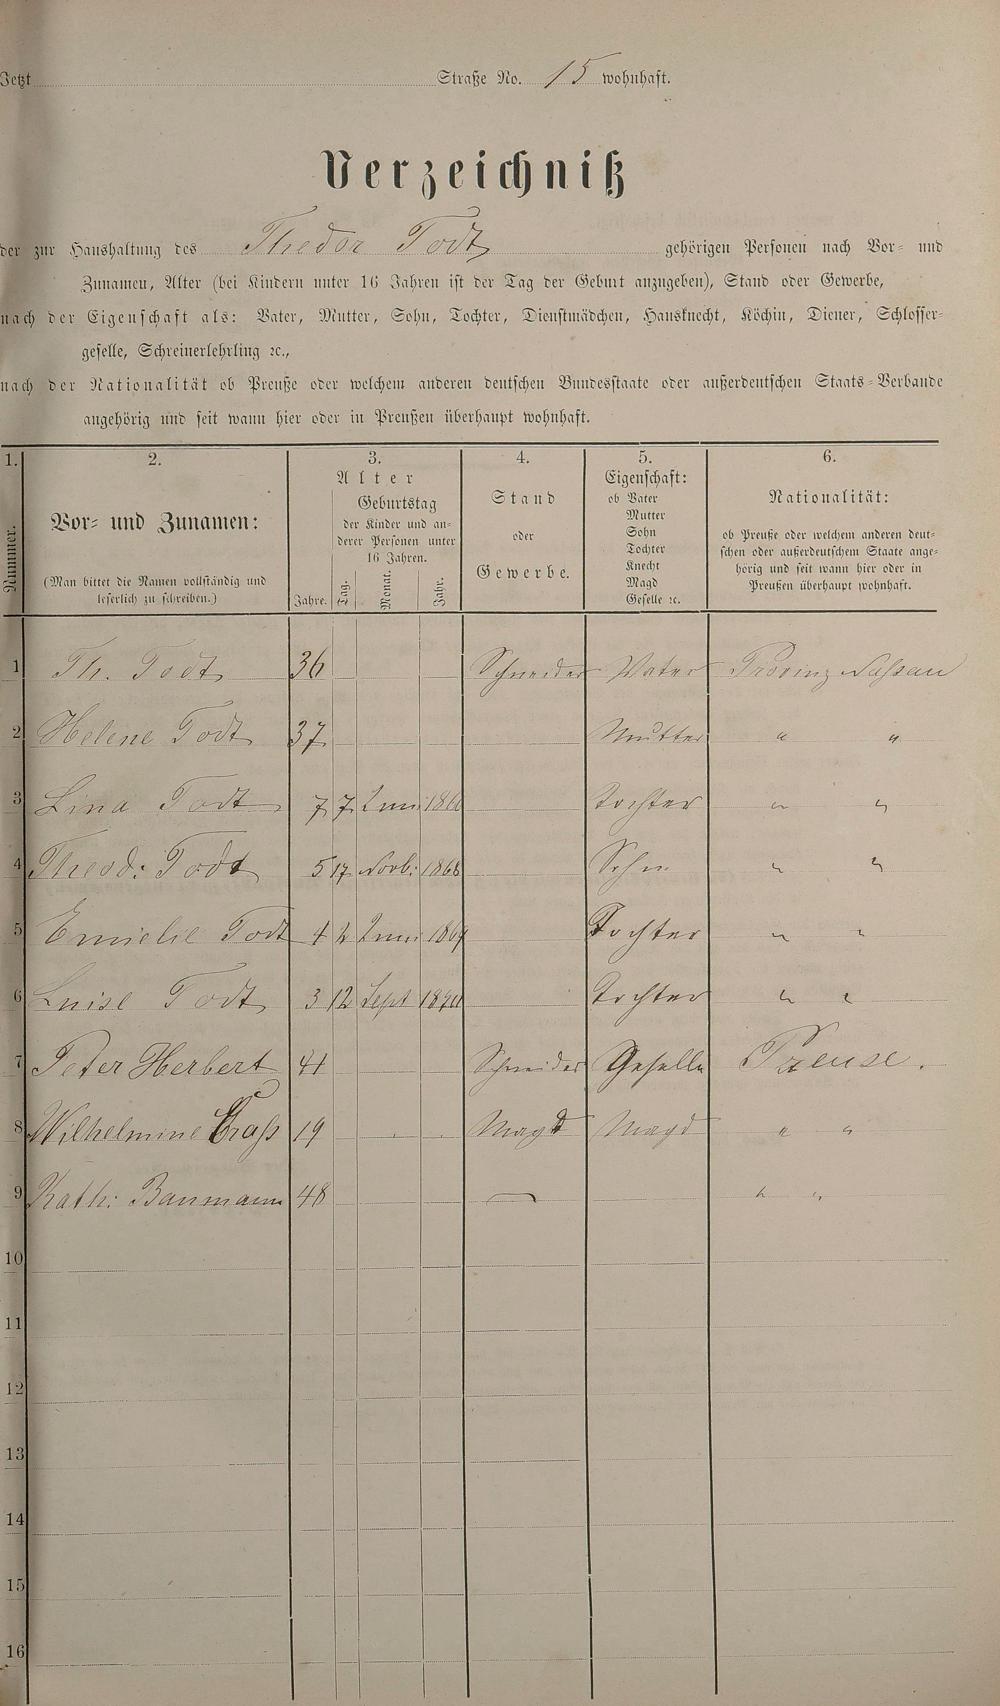 Jetzt Straße No. 15 wohnhaft.
Verzeichniß
der zur Haushaltung des Thedor Todt gehörigen Personen nach Vor- und
Zunamen, Alter (bei Kindern unter 16 Jahren ist der Tag der Geburt anzugeben), Stand oder Gewerbe,
nach der Eigenschaft als: Vater, Mutter, Sohn, Tochter, Dienstmädchen, Hausknecht, Köchin, Diener, Schlosser-
geselle, Schreinerlehrling ꝛc.,
nach der Nationalität ob Preuße oder welchem anderen deutschen Bundesstaate oder außerdeutschen Staats-Verbande
angehörig und seit wann hier oder in Preußen überhaupt wohnhaft.
1. 2. 3. 4. 5. 6.
Nummer.
Vor- und Zunamen:
(Man bittet die Namen vollständig und
leserlich zu schreiben.)
Alter
Jahre.
Geburtstag
der Kinder und an-
derer Personen unter
16 Jahren.
Tag. Monat. Jahr.
Stand
oder
Gewerbe.
Eigenschaft:
ob Vater
Mutter
Sohn
Tochter
Knecht
Magd
Geselle ꝛc.
Nationalität:
ob Preuße oder welchem anderen deut-
schen oder außerdeutschem Staate ange-
hörig und seit wann hier oder in
Preußen überhaupt wohnhaft.
1 Th. Todt 36 Schneider Vater Provinz Nassau
2 Helene Todt 37 Mutter " "
3 Lina Todt 7 7 Juni Tochter " "
4 Theod: Todt 5 17 Novb: 1868 Sohn " "
5 Emielie Todt 4 2 Juni 1869 Tochter " "
6 Luise Todt 3 12 Sept 1870 Tochter " "
7 Peter Herbert 41 Schneider Geselle Preuse.
8 Wilhelmine Craß 19 Magd Magd " "
9 Kath: Baumann 48 — " "
10
11
12
13
14
15
16